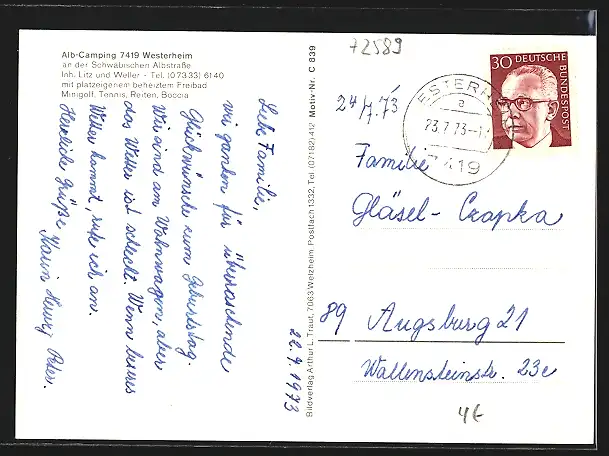 Alb-Camping 7419 Westerheim
an der Schwäbischen Albstraße
Inh. Litz und Weller - Tel. (07333) 6140
mit platzeigenem beheiztem Freibad
Minigolf, Tennis, Reiten, Boccia
Liebe Familie,
wir danken für überraschende
Glückwünsche zum Geburtstag.
Wir sind am Wohnwagen, aber
das Wetter ist schlecht. Wenn besseres
Wetter kommt, rufe ich an.
Herzliche Grüße Karin Henry Peter.
22.7.1973
Bildverlag Arthur L. Traut, 7063 Welzheim Postfach 1332, Tel. (07182) 412 Motiv-Nr. C 839
72589
24/7.73
23.7.73-1
7419
30 DEUTSCHE
BUNDESPOST
Familie
Gläsel-Czapka
89 Augsburg 21
Wallensteinstr. 23e
4€